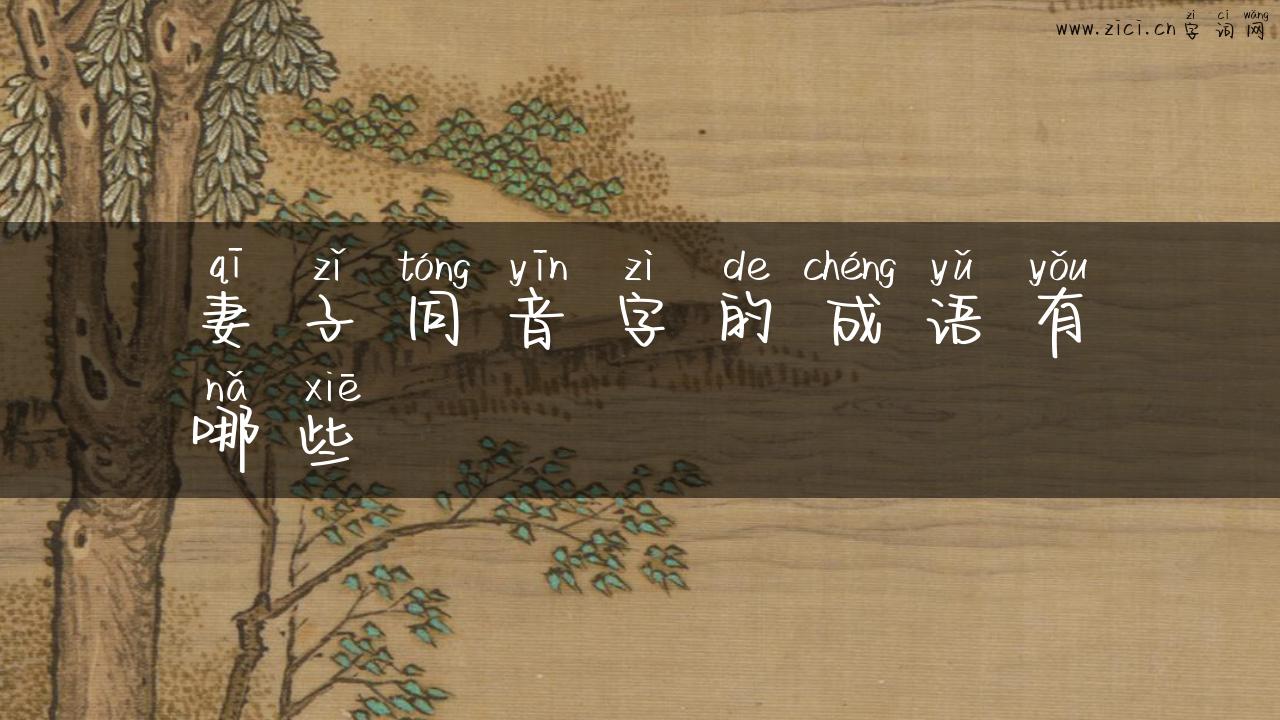 zì cí wǎng
www.zici.cn 字词网
qī zǐ tóng yīn zì de chéng yǔ yǒu
妻子同音字的成语有
nǎ xiē
哪些